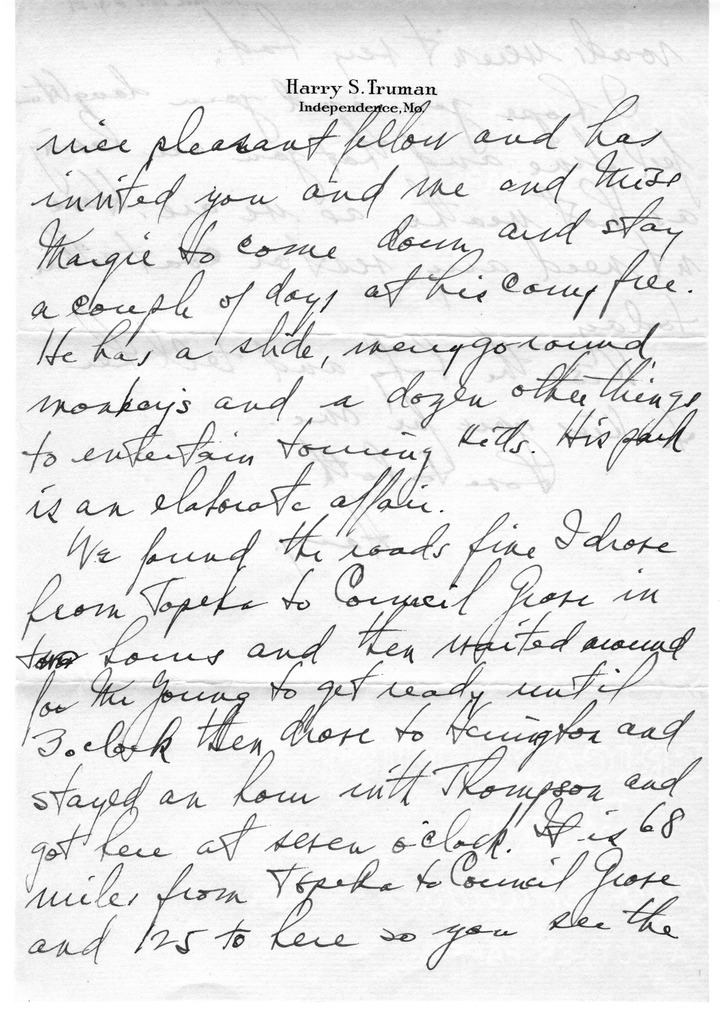 Harry S. Truman
Independence, Mo.
nice pleasant fellow and has
invited you and me and Miss
Margie to come down and stay
a couple of days at his camp free.
He has a slide, merrygoround
monkeys and a dozen other things
to entertain touring kids. His park
is an elaborate affair.
We found the roads fine I drove
from Topeka to Council Grove in
two hours and then waited around
for Mr Young to get ready until
3 oclock then drove to Herington and
stayed an hour with Thompson and
got here at seven o'clock. It is 68
miles from Topeka to Council Grove
and 125 to here so you see the